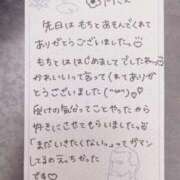 先日はもちとあそんでくれて
ありがとうございました
もちとははじめましてでしたね
かわいいって言ってくれてあり
がとうございました
受けの気かってことやったから
好きにさせてもらいました
「まだいきたくないっ」ってガマン
してるのえっちかった
です♡